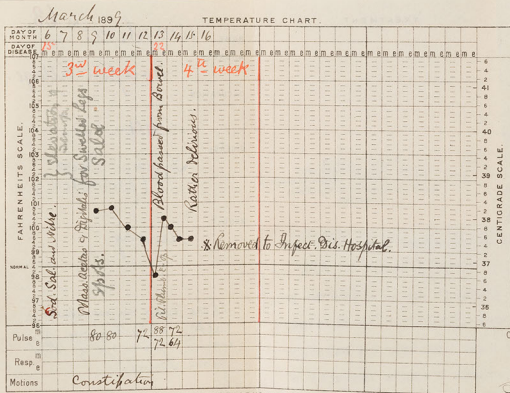 March 1899
TEMPERATURE CHART.
DAY OF MONTH 6 7 8 9 10 11 12 13 14 15 16
DAY OF DISEASE 15 22
m e m e m e m e m e m e m e m e m e m e m e m e m e m e m e m e m e m e m e m e m e m e
3rd week 4th week
FAHRENHEITS SCALE.
107
106
105
104
103
102
101
100
99
98
97
96
NORMAL
CENTIGRADE SCALE.
41
40
39
38
37
36
Elevation of
Sod. Sal. and Nitre.
Mass. acetes & Digitalis for Swelled Legs
Salol
spots.
Blood passed from Bowel.
Rather delirious.
& Removed to Infect. Dis. Hospital.
Pulse m 80 80 72 88 72
e 72 64
Resp. m
e
Motions Constipation